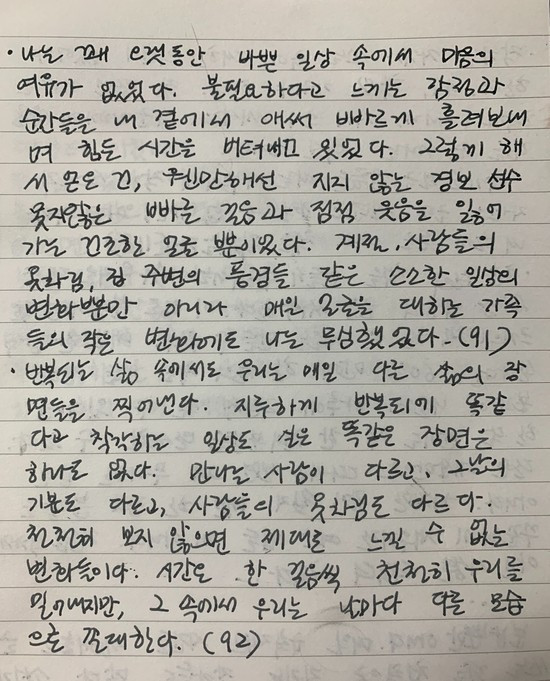 · 나는 꽤 오랫동안 바쁜 일상 속에서 마음의
여유가 없었다. 불필요하다고 느끼는 감정과
순간들을 내 곁에서 애써 빠르게 흘려보내
며 힘든 시간을 버텨내고 있었다. 그렇게 해
서 얻은 건, 웬만해선 지지 않는 경보 선수
못지않은 빠른 걸음과 점점 웃음을 잃어
가는 건조한 얼굴 뿐이었다. 계절, 사람들의
옷차림, 집 주변의 풍경들 같은 소소한 일상의
변화뿐만 아니라 매일 얼굴을 대하는 가족
들의 작은 변화에도 나는 무심했었다. (91)
· 반복되는 삶 속에서도 우리는 매일 다른 삶의 장
면들을 찍어낸다. 지루하게 반복되어 똑같
다고 착각하는 일상도 실은 똑같은 장면은
하나도 없다. 만나는 사람이 다르고, 그날의
기분도 다르고, 사람들의 옷차림도 다르다.
천천히 보지 않으면 제대로 느낄 수 없는
변화들이다. 시간은 한 걸음씩 천천히 우리를
밀어내지만, 그 속에서 우리는 날마다 다른 모습
으로 존재한다. (92)